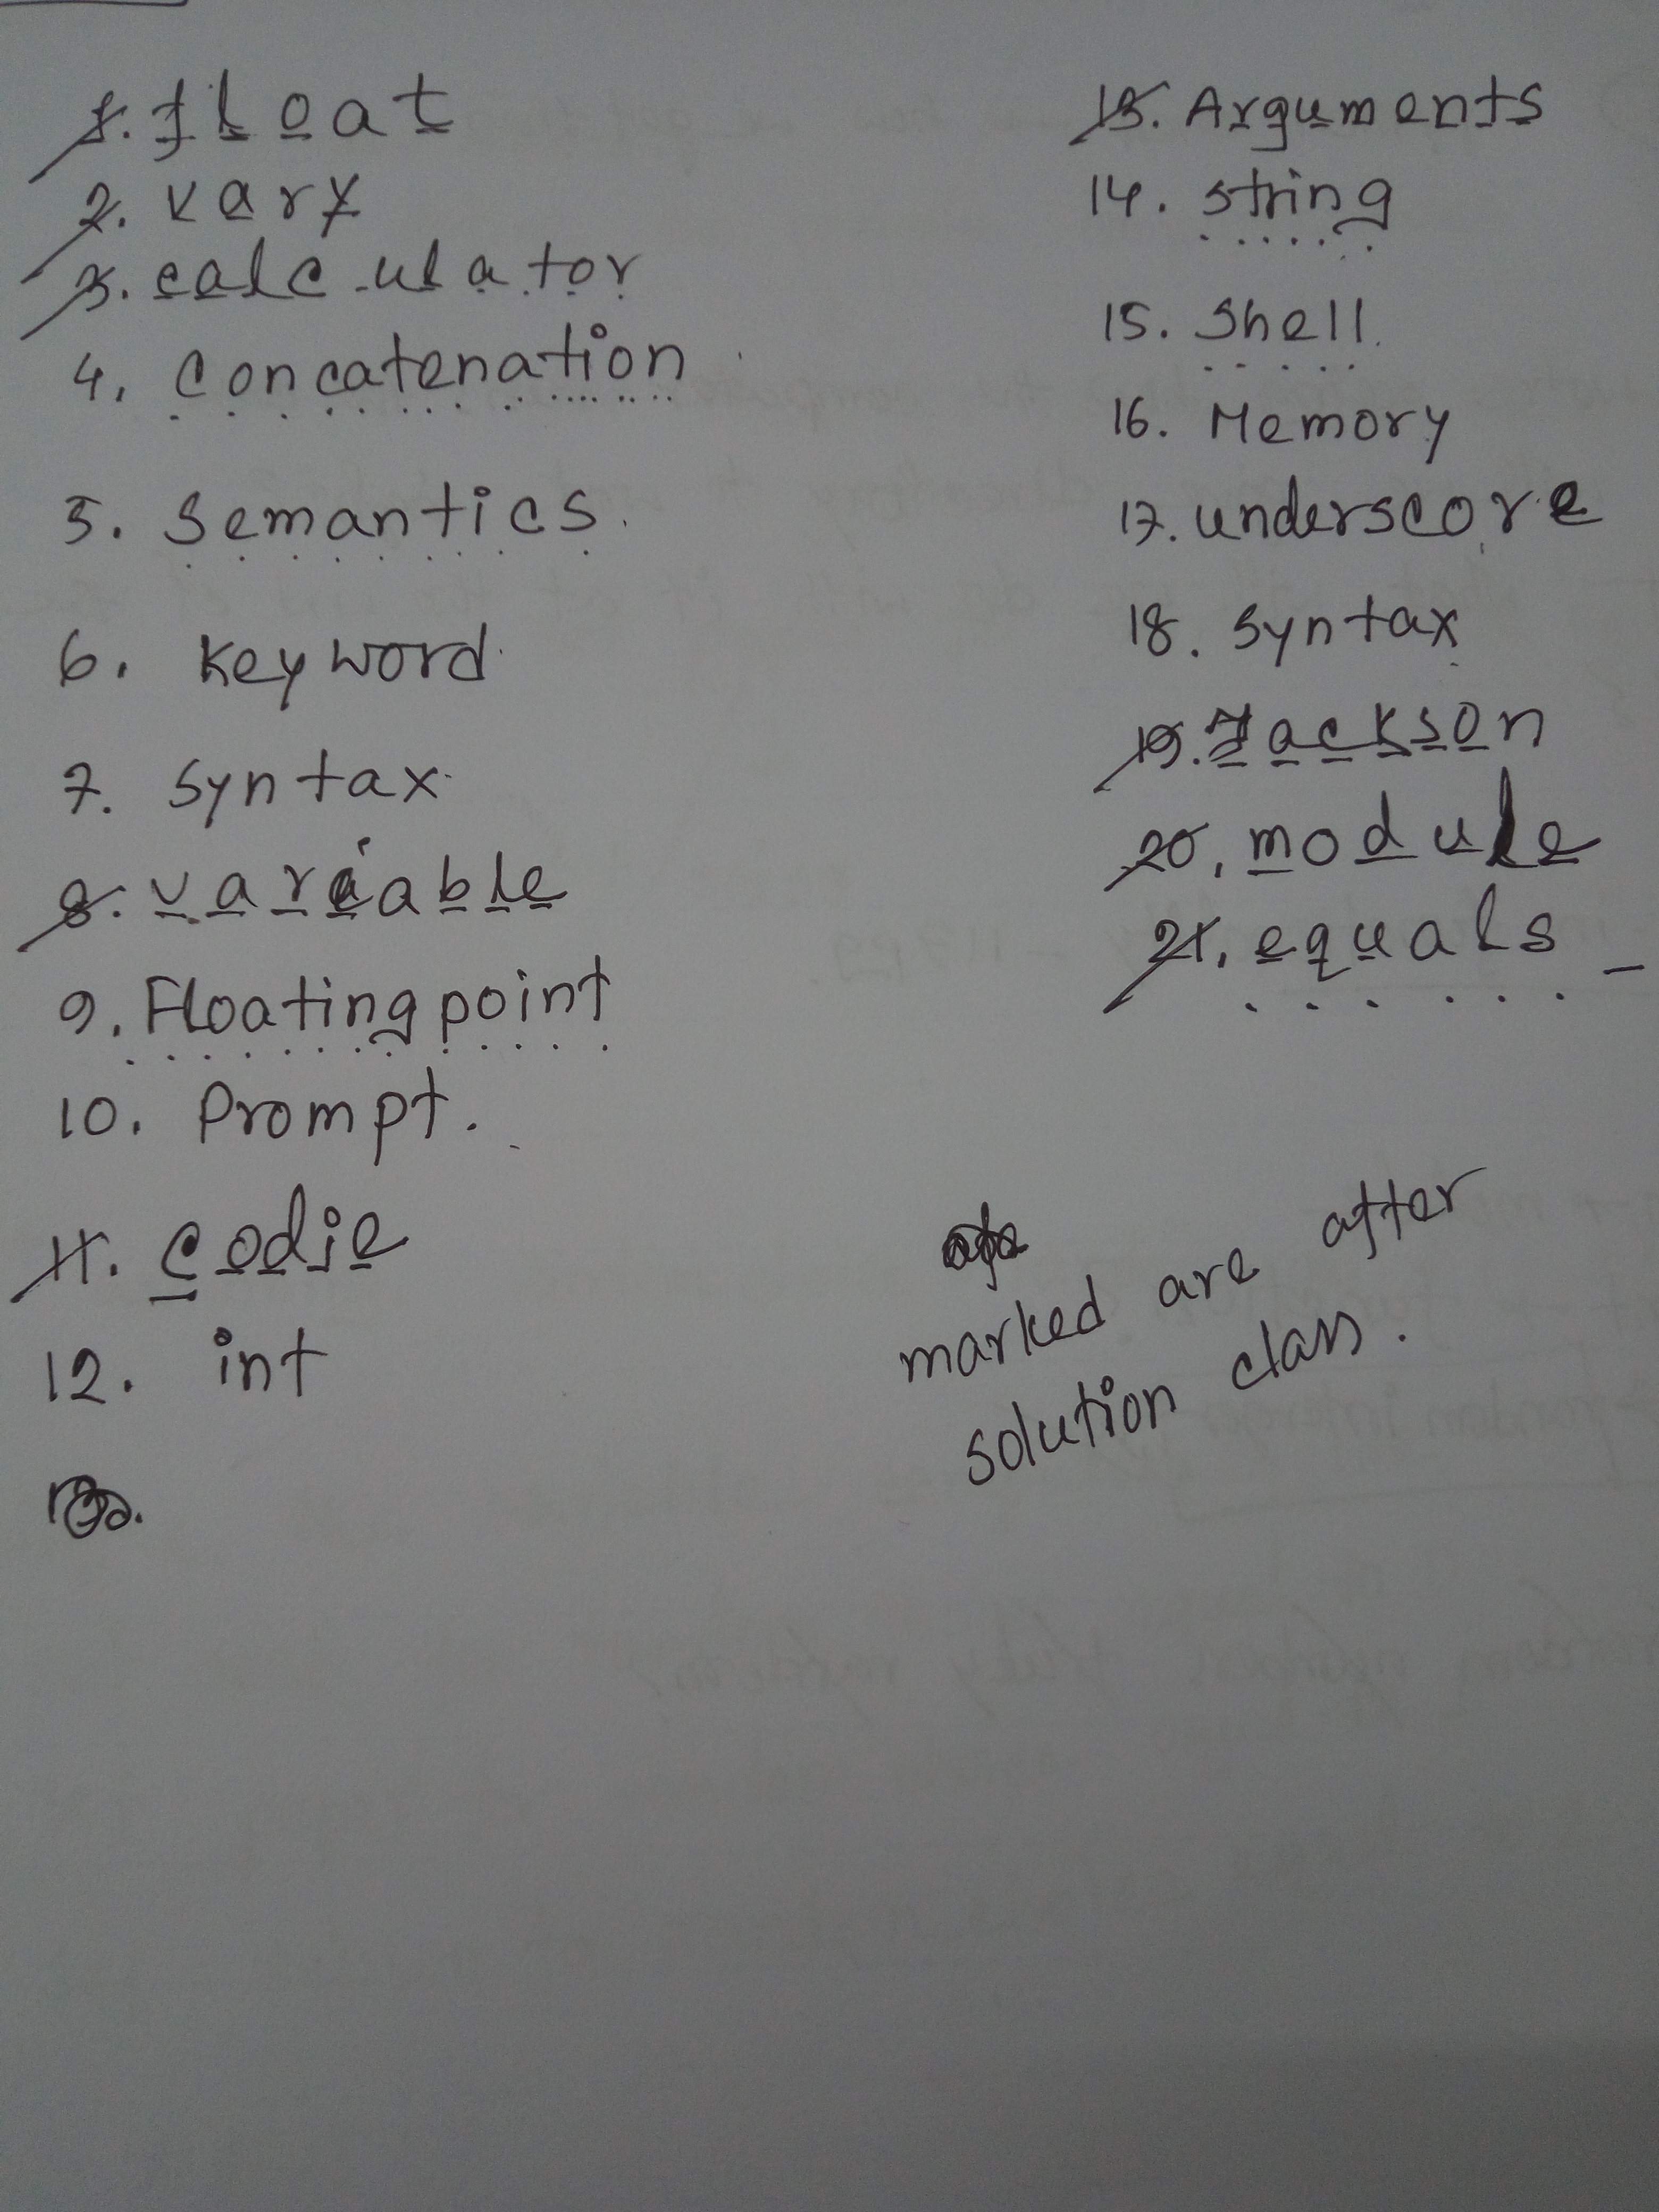 1. float
2. vary
3. calculator
4. Concatenation
5. Semantics.
6. Keyword.
7. Syntax.
8. variable
9. Floating point
10. Prompt.
11. codie
12. int
13. Arguments
14. string
15. Shell.
16. Memory
17. underscore
18. Syntax
19. Jackson
20. module
21. equals
marked are after
solution class.